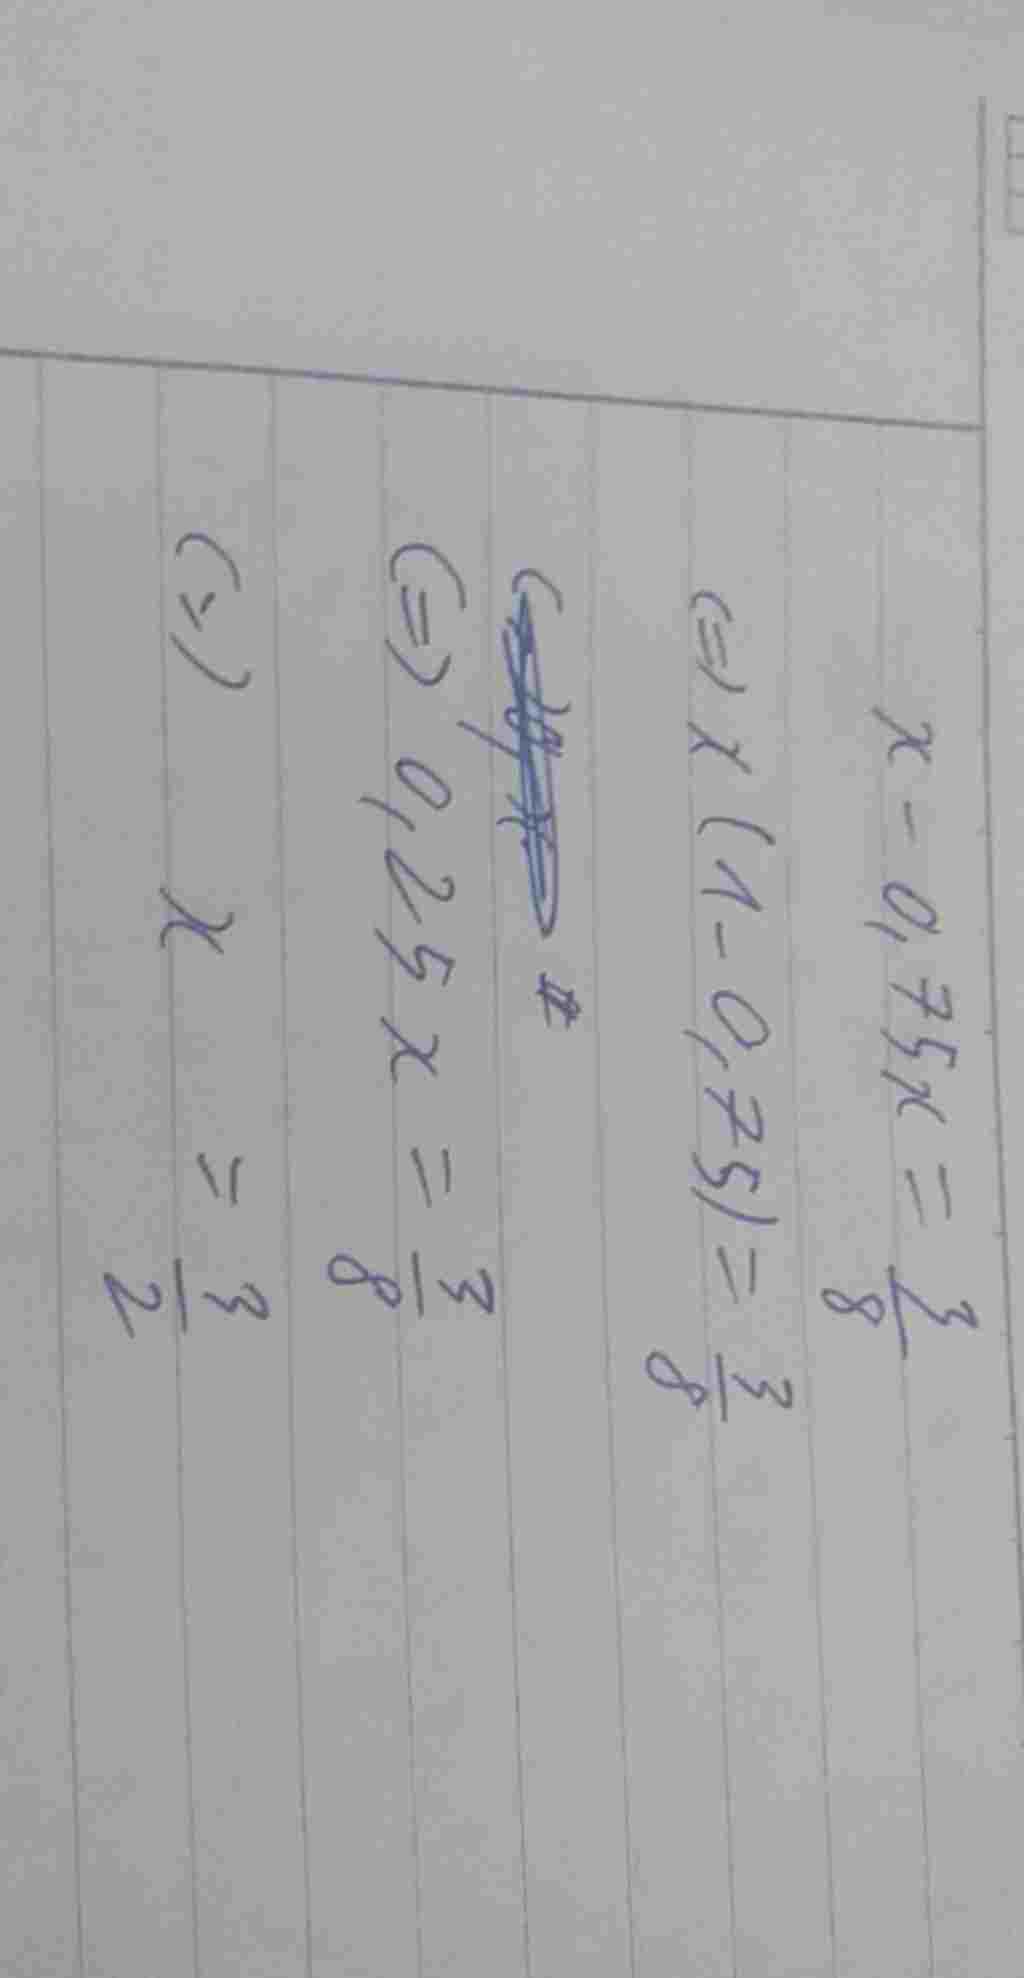 x - 0,75x = 3/8
(=) x (1 - 0,75) = 3/8
#
(=) 0,25x = 3/8
(=) x = 3/2